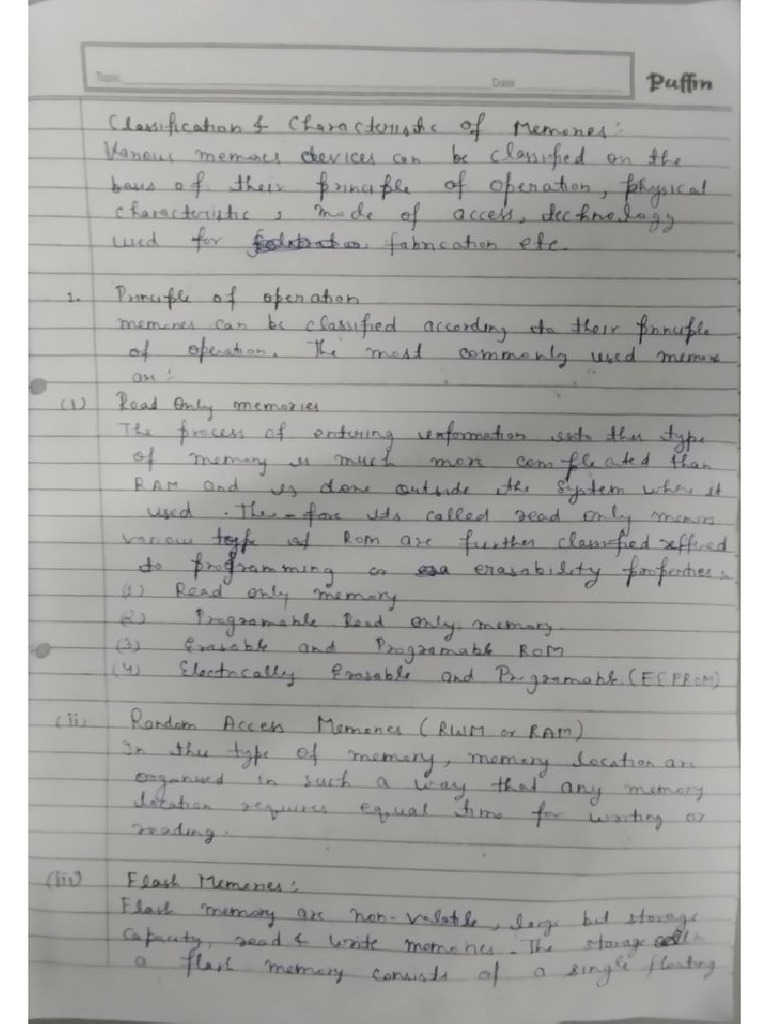 Topic Date Puffin
Classification & Characteristic of Memories:
Various memories devices can be classified on the
basis of their principle of operation, physical
characteristic, mode of access, technology
used for fabrication etc.
1. Principle of operation
memories can be classified according to their principle
of operation. The most commonly used memories
are:
(i) Read Only memories
The process of entering information into this type
of memory is much more complicated than
RAM and is done outside the system where it
used. There-fore its called read only memory
various type of Rom are further classified reffered
to programming or erasability properties:
(1) Read only memory
(2) Programable Read Only memory
(3) Erasable and Programable ROM
(4) Electrically Erasable and Programable (EEPROM)
(ii) Random Access Memories (RWM or RAM)
In this type of memory, memory location are
organised in such a way that any memory
location requires equal time for writing or
reading.
(iii) Flash Memories:
Flash memory are non-volatile, large bit storage
capacity, read & write memories. The storage cell in
a flash memory consists of a single floating